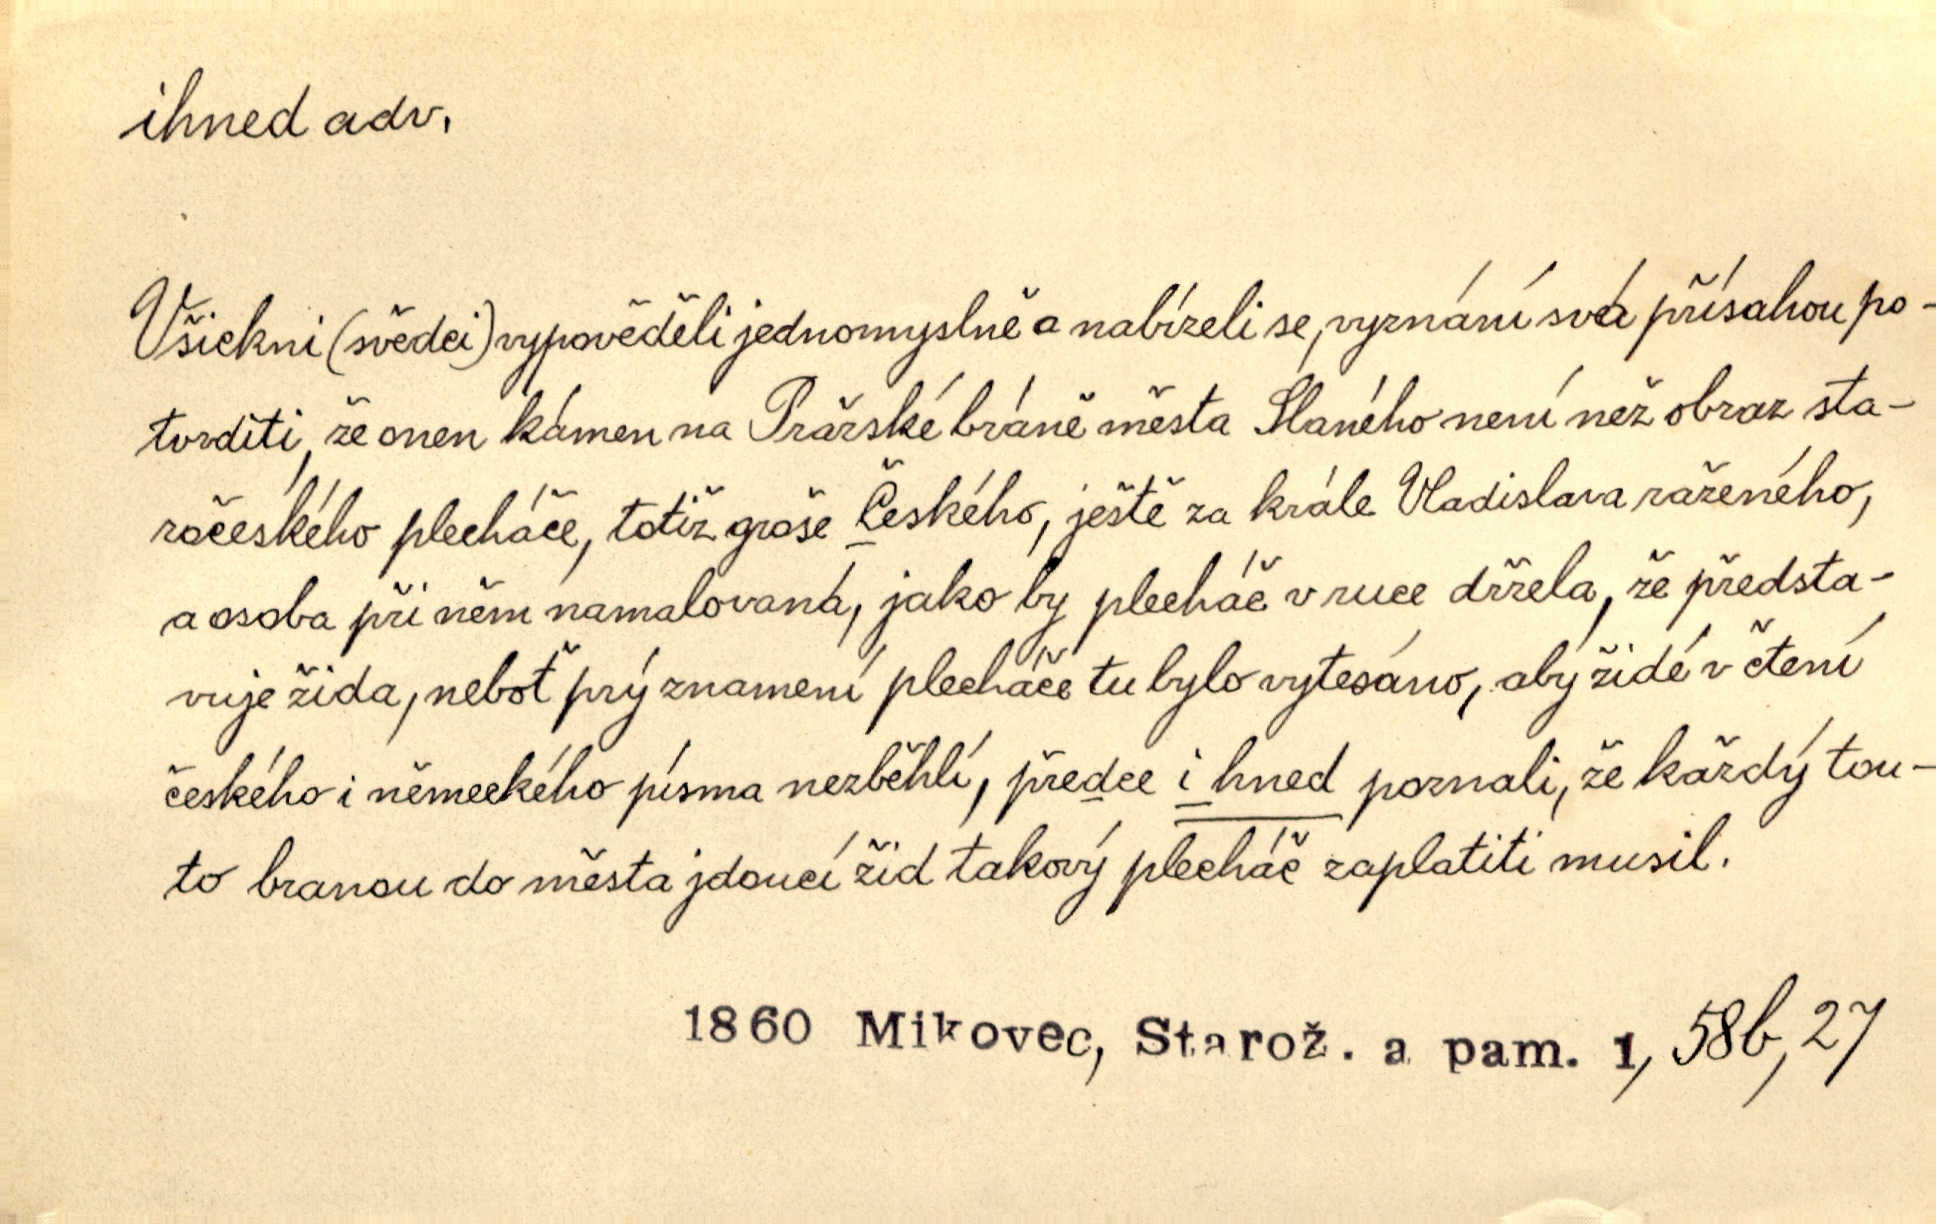 ihned adv.
Všickni (svědci) vypověděli jednomyslně a nabízeli se, vyznání svá přísahou po-
tvrditi, že onen kámen na Pražské bráně města Slaného není než obraz sta-
ročeského plecháče, totiž groše Českého, ještě za krále Vladislava raženého,
a osoba při něm namalovaná, jako by plecháč v ruce držela, že představ-
vuje žida, neboť prý znamení plecháče tu bylo vytesáno, aby židé v čtení
českého i německého písma nezběhlí, předce i hned poznali, že každý tou-
to branou do města jdoucí žid takový plecháč zaplatiti musil.
1860 Mikovec, Starož. a pam. 1, 58b, 27